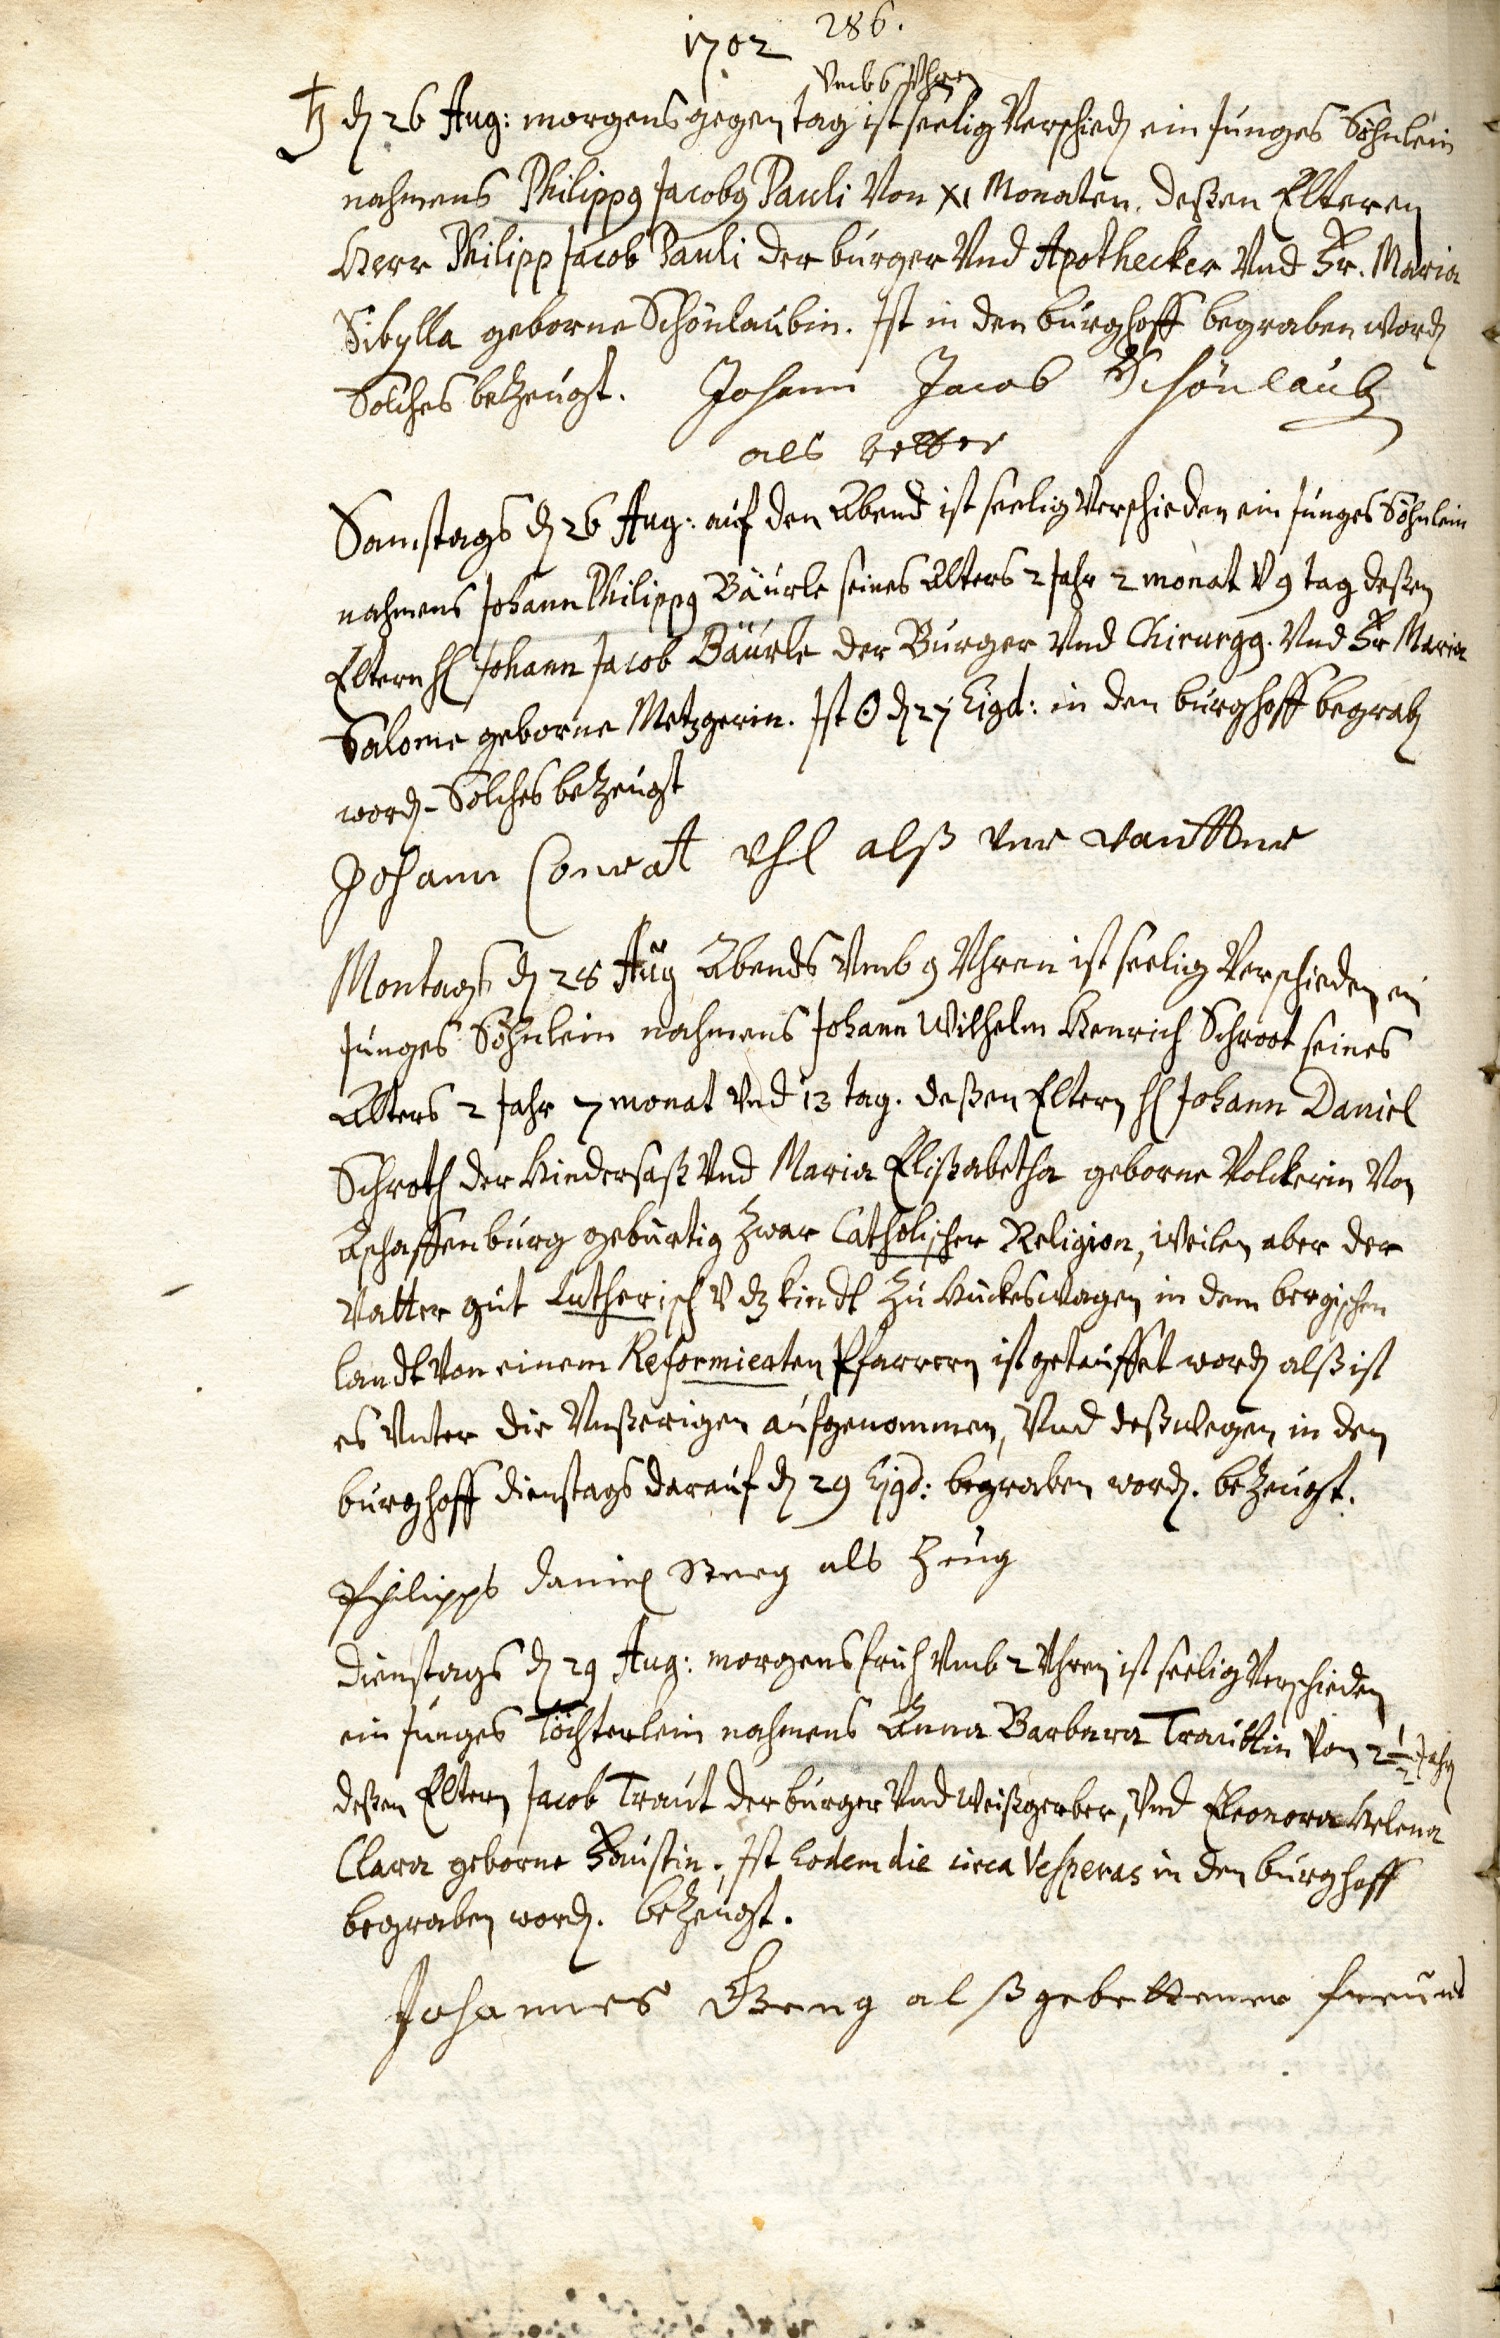 1702
286.
Vmb 6 Uhren
♄ dn 26 Aug: morgens gegen tag ist seelig Verschiedn ein Junges Söhnlein
nahmens Philippg Jacobg Pauli Von XI Monaten. deßen Elteren
Herr Philipp Jacob Pauli der burger Vnd Apothecker Vnd Fr. Maria
Sibylla geborne Schönlaubin. Ist in den burghoff begraben wordn
Solches bezeugt. Johann Jacob Schönlaub
als vetter
Samstags dn 26 Aug: auf den Abend ist seelig Verschieden ein Junges Söhnlein
nahmens Johann Philippg Bäurle seines Alters 2 Jahr 2 monat V 9 tag deßen
Eltern H Johann Jacob Bäurle der Burger Vnd Chirurgg. Vnd Fr Maria
Salome geborne Metzgerin. Ist ☉ dn 27 Ejgd: in den burghoff begrabn
wordn - Solches bezeugt
Johann Conrat Vhl alß
Montags dn 28 Aug Abends Vmb 9 Vhren ist seelig Verschieden ein
Junges Söhnlein nahmens Johann Wilhelm Henrich Schroot seines
Alters 2 Jahr 7 monat Vnd 13 tag. deßen Eltern H Johann Daniel
Schroth der Hindersaß Vnd Maria Elißabetha geborne Volckerin Von
Aschaffenburg gebürtig zwar Catholischer Religion, weilen aber der
Vatter gut Lutherisch V dz kindt zu Huckeswagen in dem bergischen
landt Von einem Reformierten Pfarrern ist getauffet wordn alß ist
es Vnter die Vnßerigen aufgenommen, Vnd deßwegen in den
burghoff dienstags darauf dn 29 Ejgd: begraben wordn. bezeugt.
Philipps Daniel als Zeug
Dienstags dn 29 Aug: morgens früh Vmb 2 Vhren ist seelig Verschieden
ein Junges Töchterlein nahmens Anna Barbara Trauttin Von 2½ Jahrn
deßen Eltern Jacob Traut der burger Vnd Weißgerber, Vnd Eleonora Helena
Clara geborne Faustin. Ist Eodem die circa Vesperas in den burghoff
begraben wordn. bezeugt.
Johannes alß gebettener freund